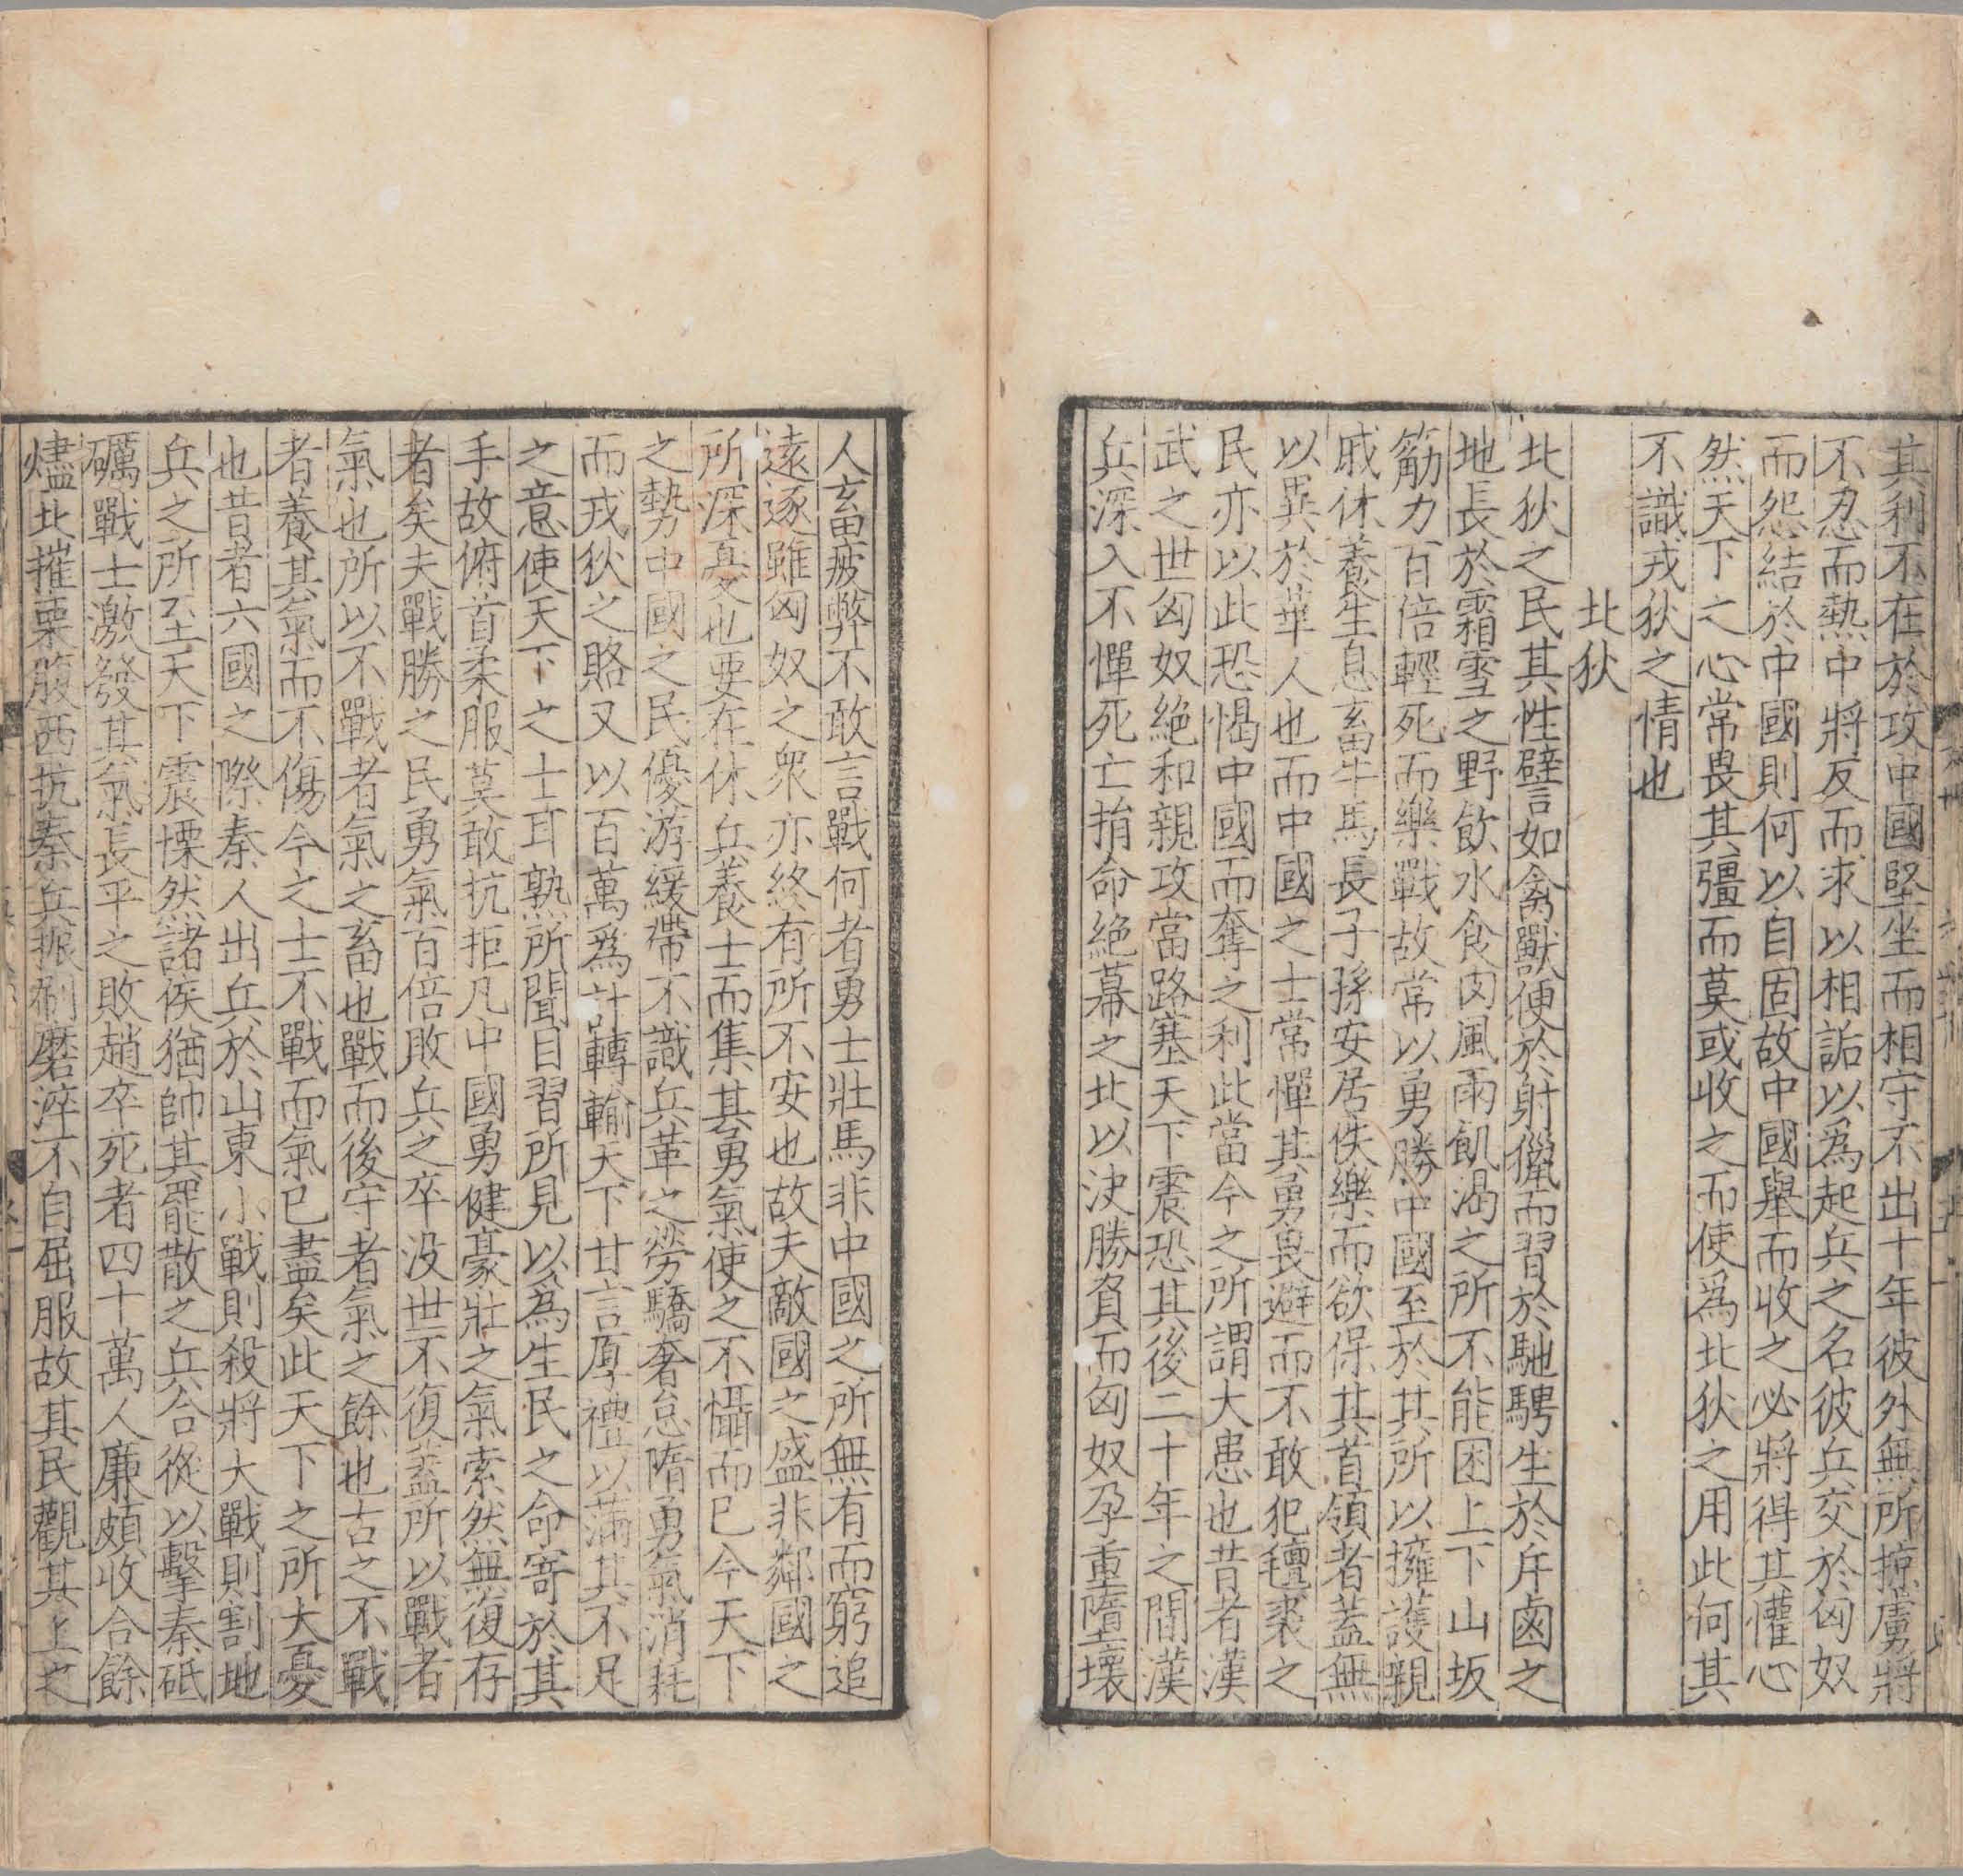 其利不在於攻中國堅坐而相守不出十年彼外無所掠虜將
不忍而熱中將反而求以相詬以為起兵之名彼兵交於匈奴
而怨結於中國則何以自固故中國舉而收之必將得其懽心
然天下之心常畏其彊而莫或收之而使為北狄之用此何其
不識戎狄之情也
北狄
北狄之民其性譬如禽獸便於射獵而習於馳騁生於斥鹵之
地長於霜雪之野飲水食肉風雨飢渴之所不能困上下山坂
筋力百倍輕死而樂戰故常以勇勝中國至於其所以擁護親
戚休養生息畜牛馬長子孫安居佚樂而欲保其首領者蓋無
以異於華人也而中國之士常憚其勇畏避而不敢犯氊裘之
民亦以此恐愒中國而奪之利此當今之所謂大患也昔者漢
武之世匈奴絶和親攻當路塞天下震恐其後二十年之間漢
兵深入不憚死亡捐命絶幕之北以决勝負而匈奴孕重墮壞
人畜疲弊不敢言戰何者勇士壯馬非中國之所無有而窮追
遠逐雖匈奴之衆亦終有所不安也故夫敵國之盛非鄰國之
所深憂也要在休兵養士而集其勇氣使之不懾而已今天下
之勢中國之民優游緩帶不識兵革之勞驕奢怠隋勇氣消耗
而戎狄之賂又以百萬為計轉輸天下甘言厚禮以滿其不足
之意使天下之士耳熟所聞目習所見以為生民之命寄於其
手故俯首柔服莫敢抗拒凡中國勇健豪壯之氣索然無復存
者矣夫戰勝之民勇氣百倍敗兵之卒没世不復蓋所以戰者
氣也所以不戰者氣之畜也戰而後守者氣之餘也古之不戰
者養其氣而不傷今之士不戰而氣已盡矣此天下之所大憂
也昔者六國之際秦人出兵於山東小戰則殺將大戰則割地
兵之所至天下震慄然諸侯猶帥其罷散之兵合從以擊秦砥
礪戰士激發其氣長平之敗趙卒死者四十萬人廉頗收合餘
燼北摧栗腹西抗秦兵振刷磨淬不自屈服故其民觀其上之